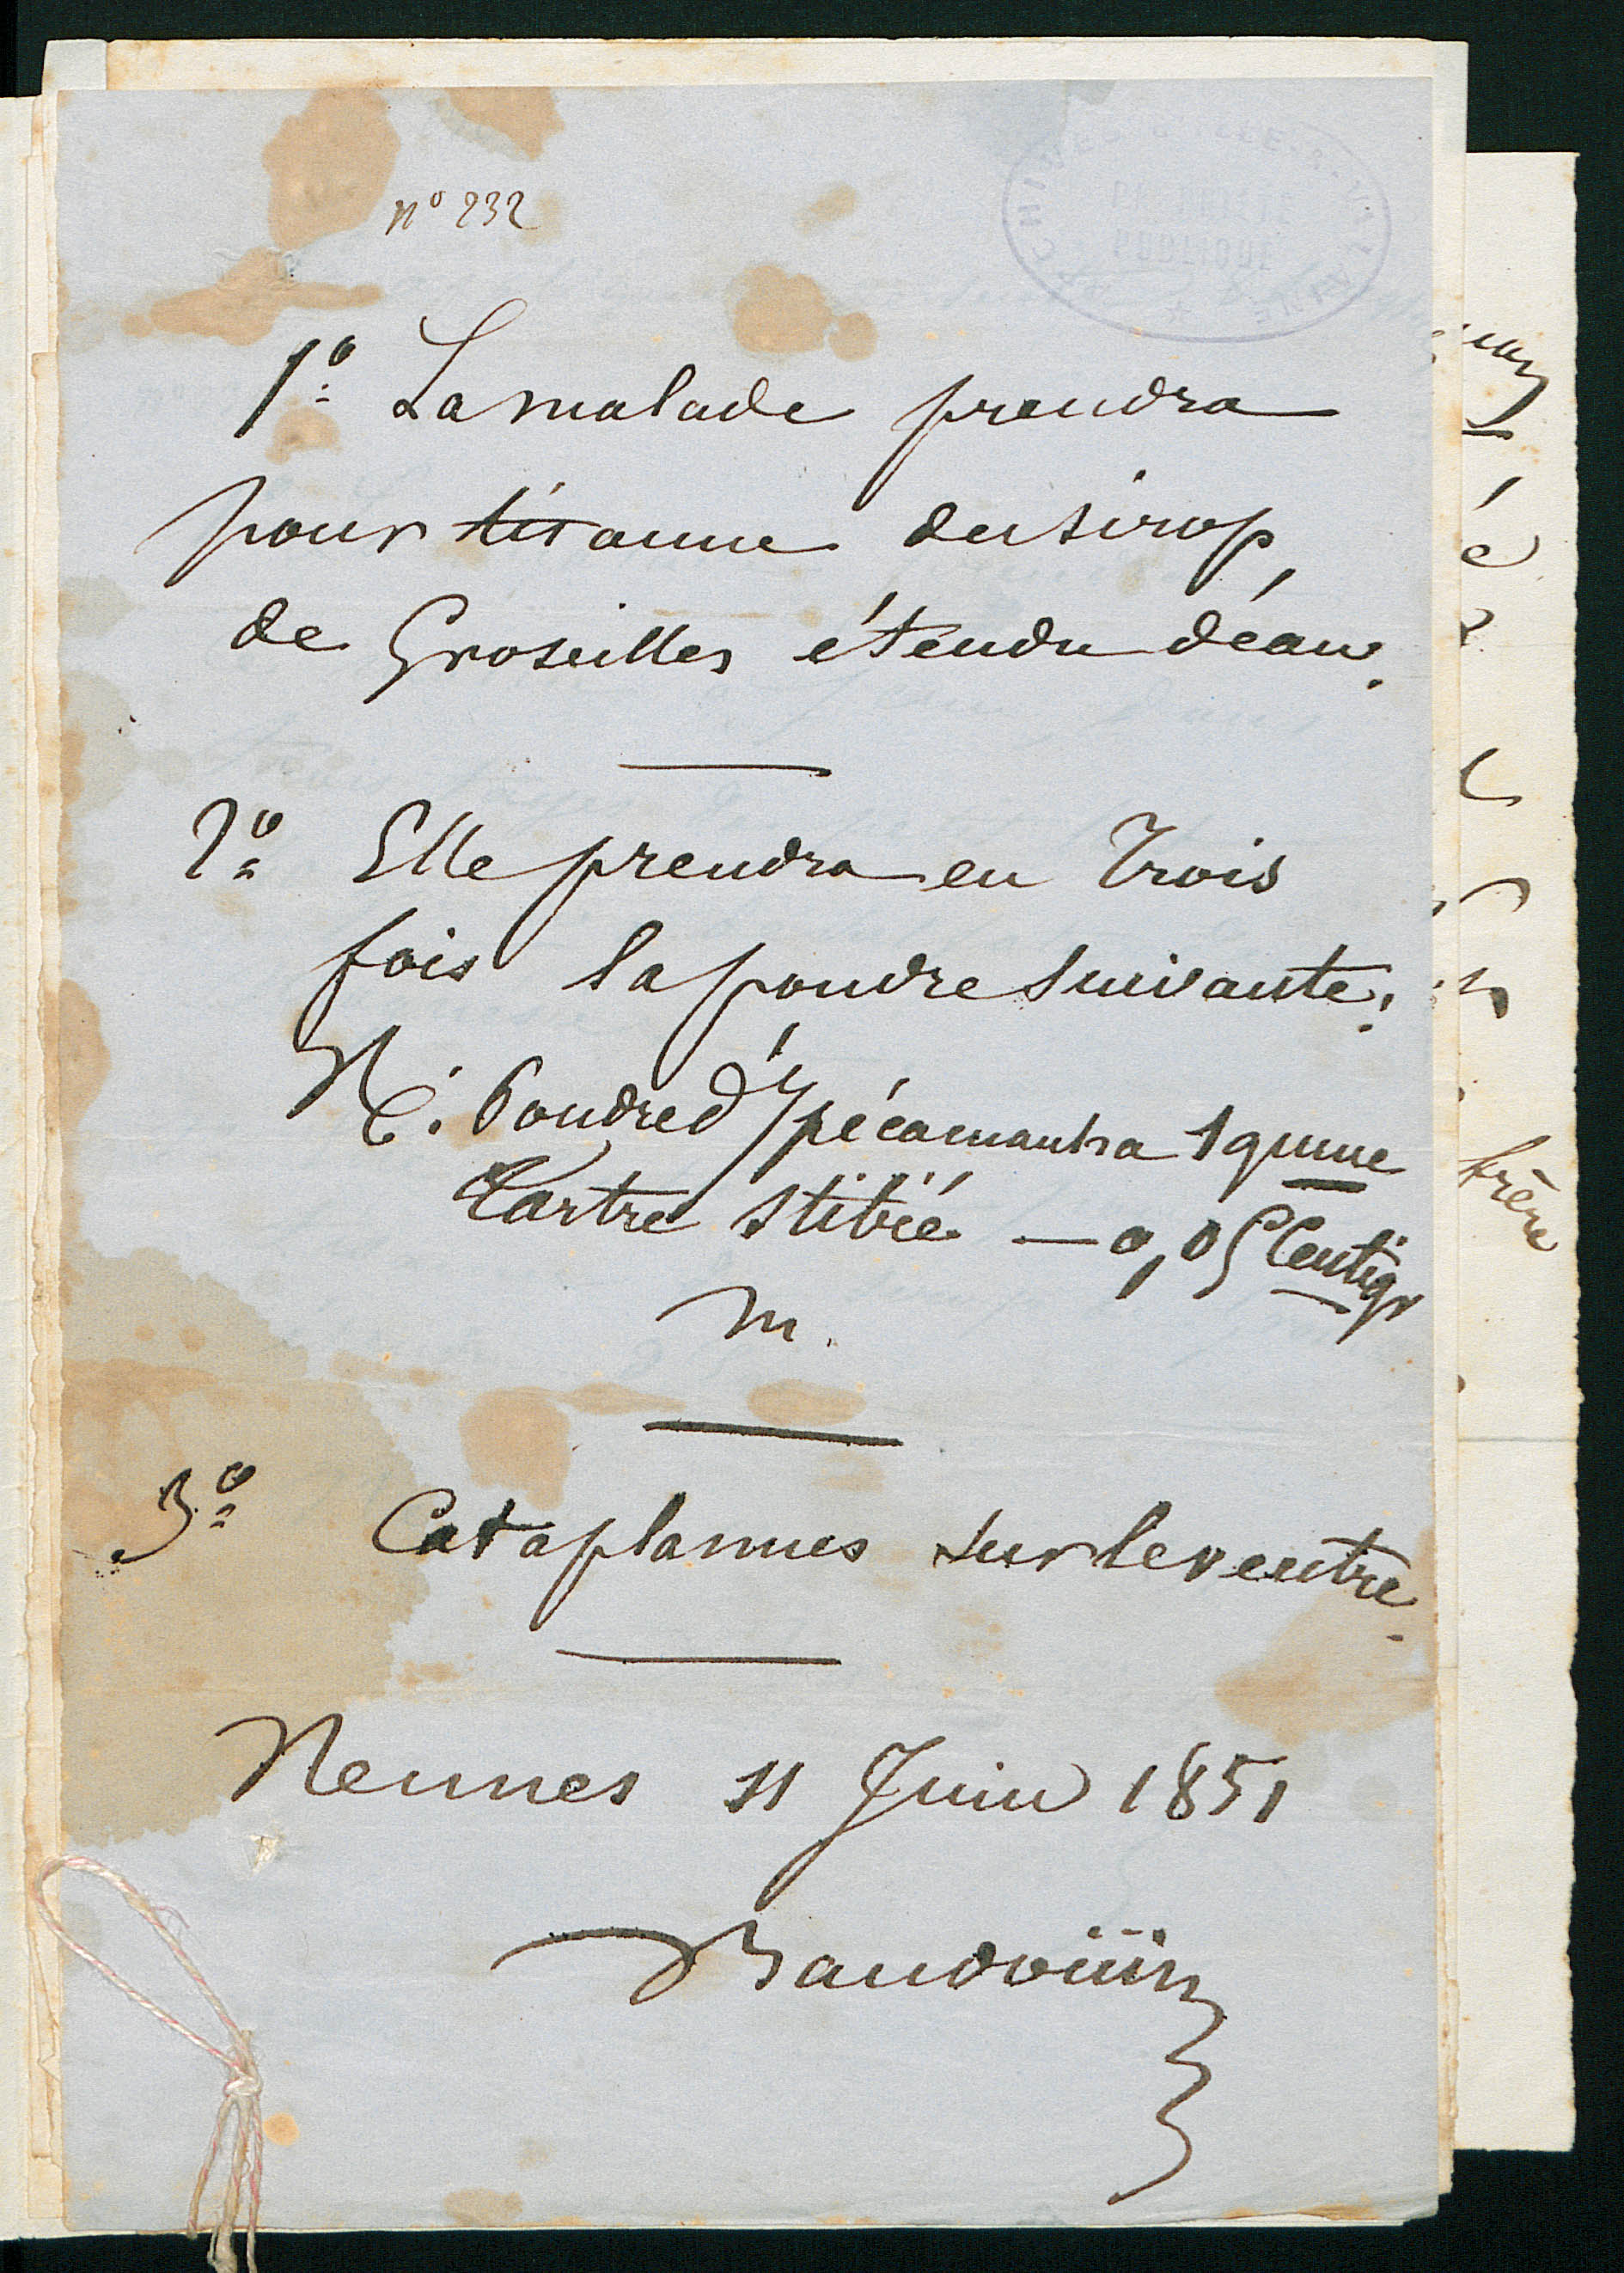 n° 232
ARCHIVES D'ILLE-&-VILAINE
PROPRIÉTÉ
PUBLIQUE
1° La malade prendra
pour tisanne du sirop
de Groseilles étendu d'eau.
2° Elle prendra en trois
fois la poudre suivante.
R. Poudre d'Ypécamanha 1 gmme
Tartre stibié — 0,05 Centigr
M.
3° Cataplasmes sur le ventre.
Rennes 11 Juin 1851
Baudoüin
frère